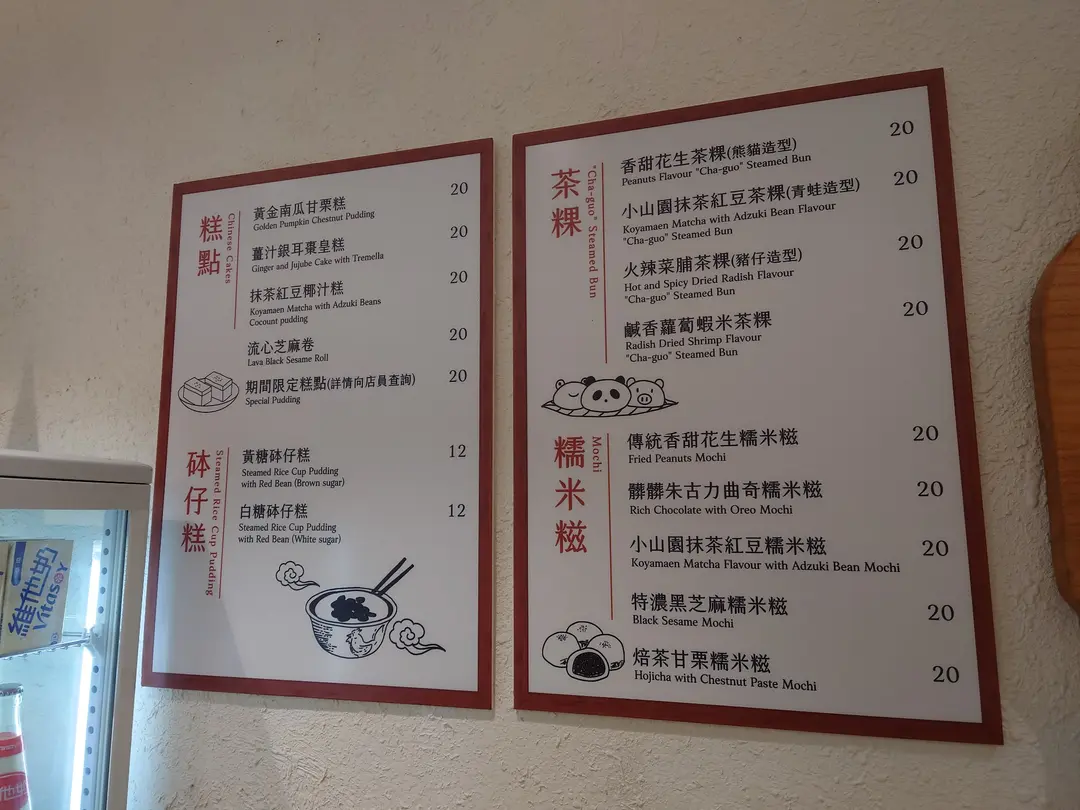 糕點
Chinese Cakes
黃金南瓜甘栗糕 20
Golden Pumpkin Chestnut Pudding
薑汁銀耳棗皇糕 20
Ginger and Jujube Cake with Tremella
抹茶紅豆椰汁糕 20
Koyamaen Matcha with Adzuki Beans
Cocount pudding
流心芝麻卷 20
Lava Black Sesame Roll
期間限定糕點(詳情向店員查詢) 20
Special Pudding
砵仔糕
Steamed Rice Cup Pudding
黃糖砵仔糕 12
Steamed Rice Cup Pudding
with Red Bean (Brown sugar)
白糖砵仔糕 12
Steamed Rice Cup Pudding
with Red Bean (White sugar)
茶粿
"Cha-guo" Steamed Bun
香甜花生茶粿(熊貓造型) 20
Peanuts Flavour "Cha-guo" Steamed Bun
小山園抹茶紅豆茶粿(青蛙造型) 20
Koyamaen Matcha with Adzuki Bean Flavour
"Cha-guo" Steamed Bun
火辣菜脯茶粿(豬仔造型) 20
Hot and Spicy Dried Radish Flavour
"Cha-guo" Steamed Bun
鹹香蘿蔔蝦米茶粿 20
Radish Dried Shrimp Flavour
"Cha-guo" Steamed Bun
糯米糍
Mochi
傳統香甜花生糯米糍 20
Fried Peanuts Mochi
髒髒朱古力曲奇糯米糍 20
Rich Chocolate with Oreo Mochi
小山園抹茶紅豆糯米糍 20
Koyamaen Matcha Flavour with Adzuki Bean Mochi
特濃黑芝麻糯米糍 20
Black Sesame Mochi
焙茶甘栗糯米糍 20
Hojicha with Chestnut Paste Mochi
維他奶
Vitasoy